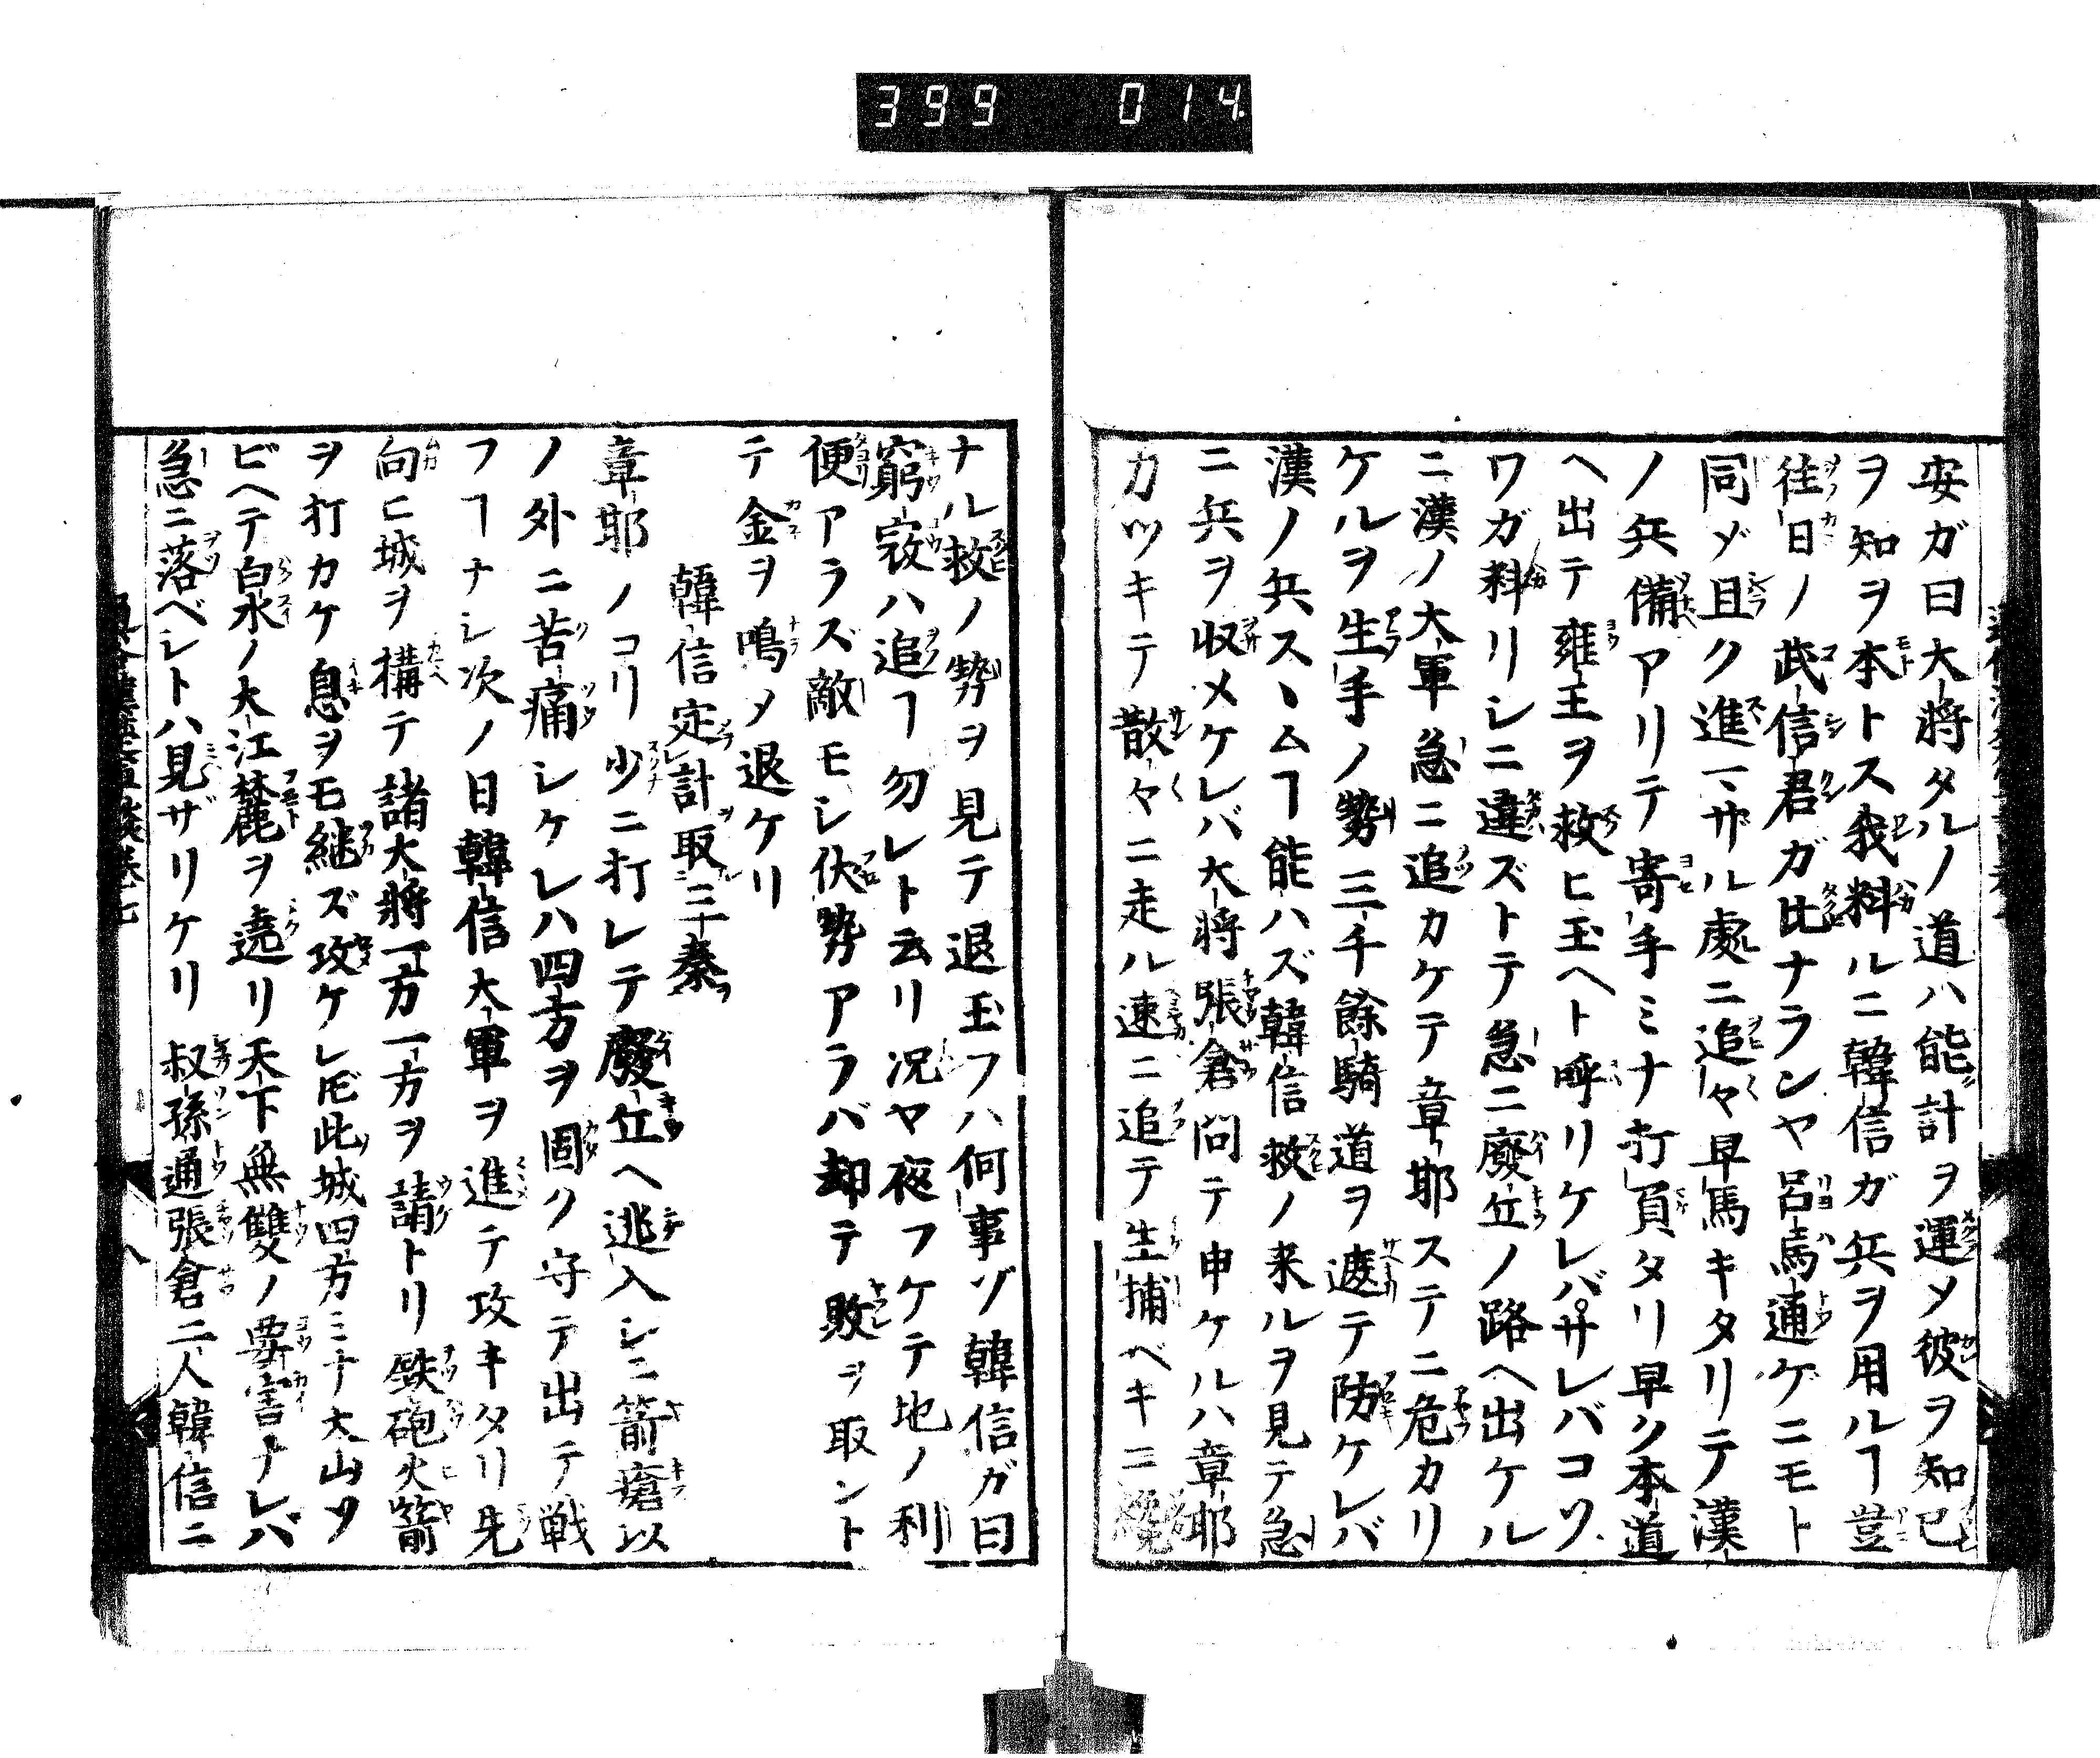 399 014
安ガ曰大将タルノ道ハ能計ヲ運メ彼ヲ知己
ヲ知ヲ本トス我料ルニ韓信ガ兵ヲ用ルヿ豈
往日ノ武信君ガ比ナランヤ呂馬通ケニモト
同ゾ且ク進マザル處ニ追々早馬キタリテ漢
ノ兵備アリテ寄手ミナ打負タリ早ク本道
ヘ出テ雍王ヲ救ヒ玉ヘト呼リケレバサレバコソ
ワガ料リシニ違ズトテ急ニ廢丘ノ路ヘ出ケル
ニ漢ノ大軍急ニ追カケテ章耶ステニ危カリ
ケルヲ生手ノ勢三千餘騎道ヲ遮テ防ケレバ
漢ノ兵スヽムヿ能ハズ韓信救ノ来ルヲ見テ急
ニ兵ヲ収メケレバ大将張倉問テ申ケルハ章耶
カツキテ散々ニ走ル速ニ追テ生捕ベキニ
ナル救ノ勢ヲ見テ退玉フハ何事ゾ韓信ガ曰
窮寇ハ追ヿ勿レト云リ况ヤ夜フケテ地ノ利
便アラズ敵モシ伏勢アラバ却テ敗ヲ取ント
テ金ヲ鳴メ退ケリ
韓信定計取三秦
章耶ノコリ少ニ打レテ廢丘ヘ逃入シニ箭瘡以
ノ外ニ苦痛シケレハ四方ヲ固ク守テ出テ戦
フヿナシ次ノ日韓信大軍ヲ進テ攻キタリ先
向ヒ城ヲ構テ諸大将一方一方ヲ請トリ鉄砲火箭
ヲ打カケ息ヲモ継ズ攻ケレ𪜈此城四方ミナ大山ソ
ビヘテ白水ノ大江麓ヲ遶リ天下無雙ノ要害ナレバ
急ニ落ベシトハ見ザリケリ叔孫通張倉二人韓信ニ